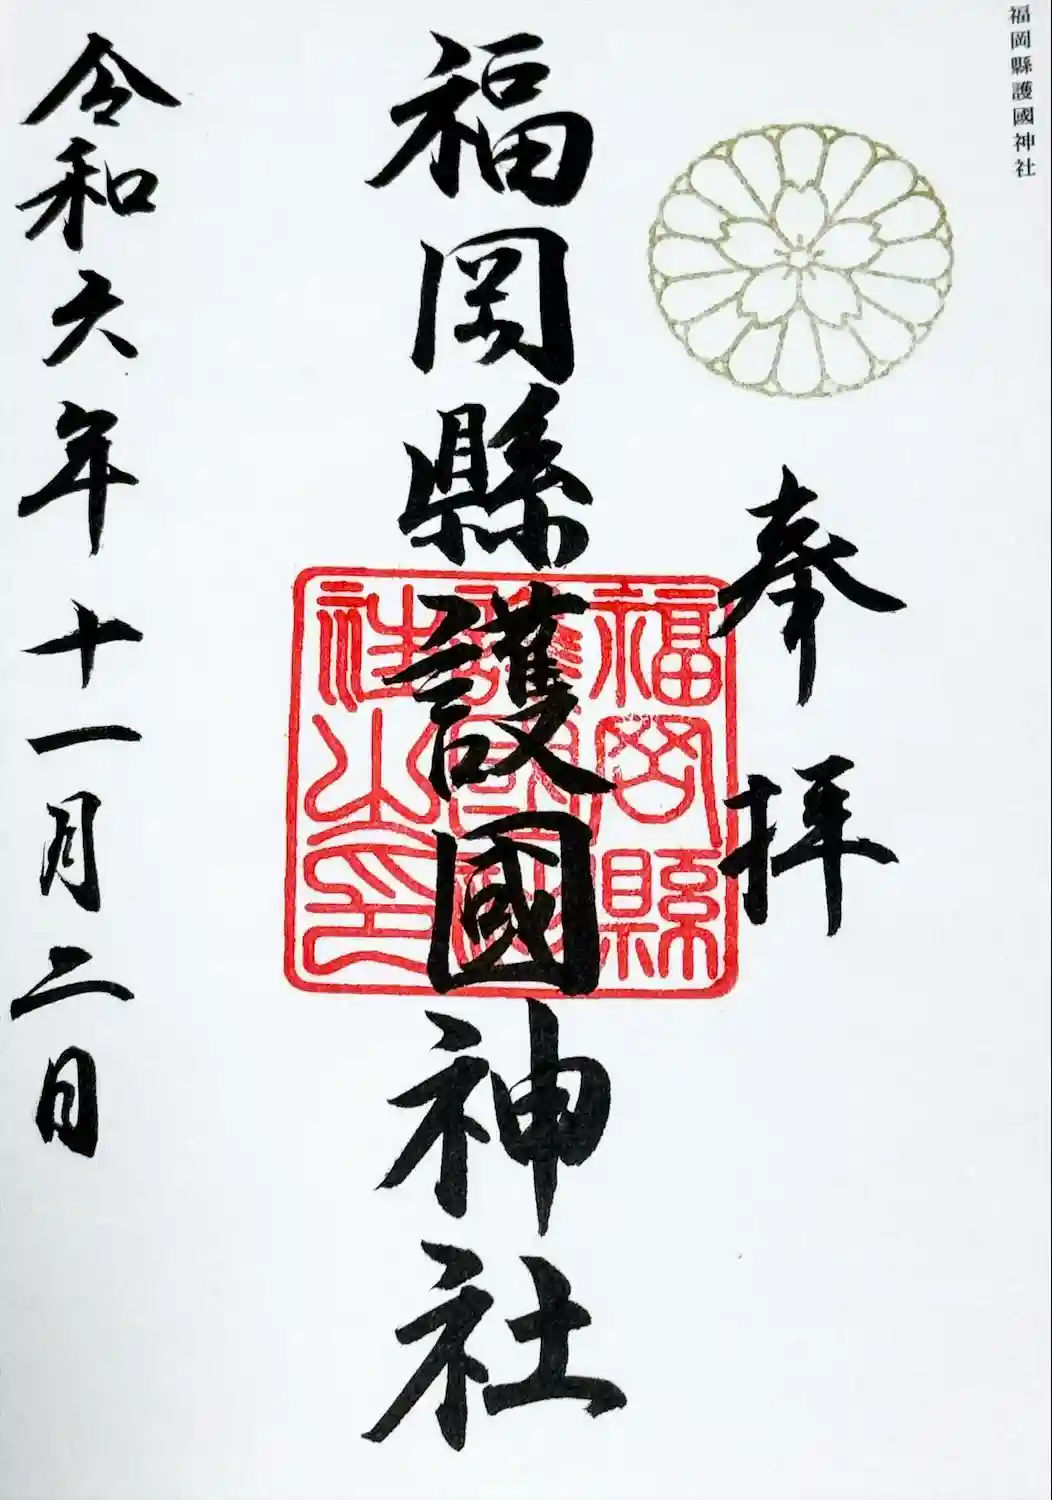 福岡縣護國神社
奉拝
福岡縣護國神社
福岡縣
護國神
社之印
令和六年十一月二日